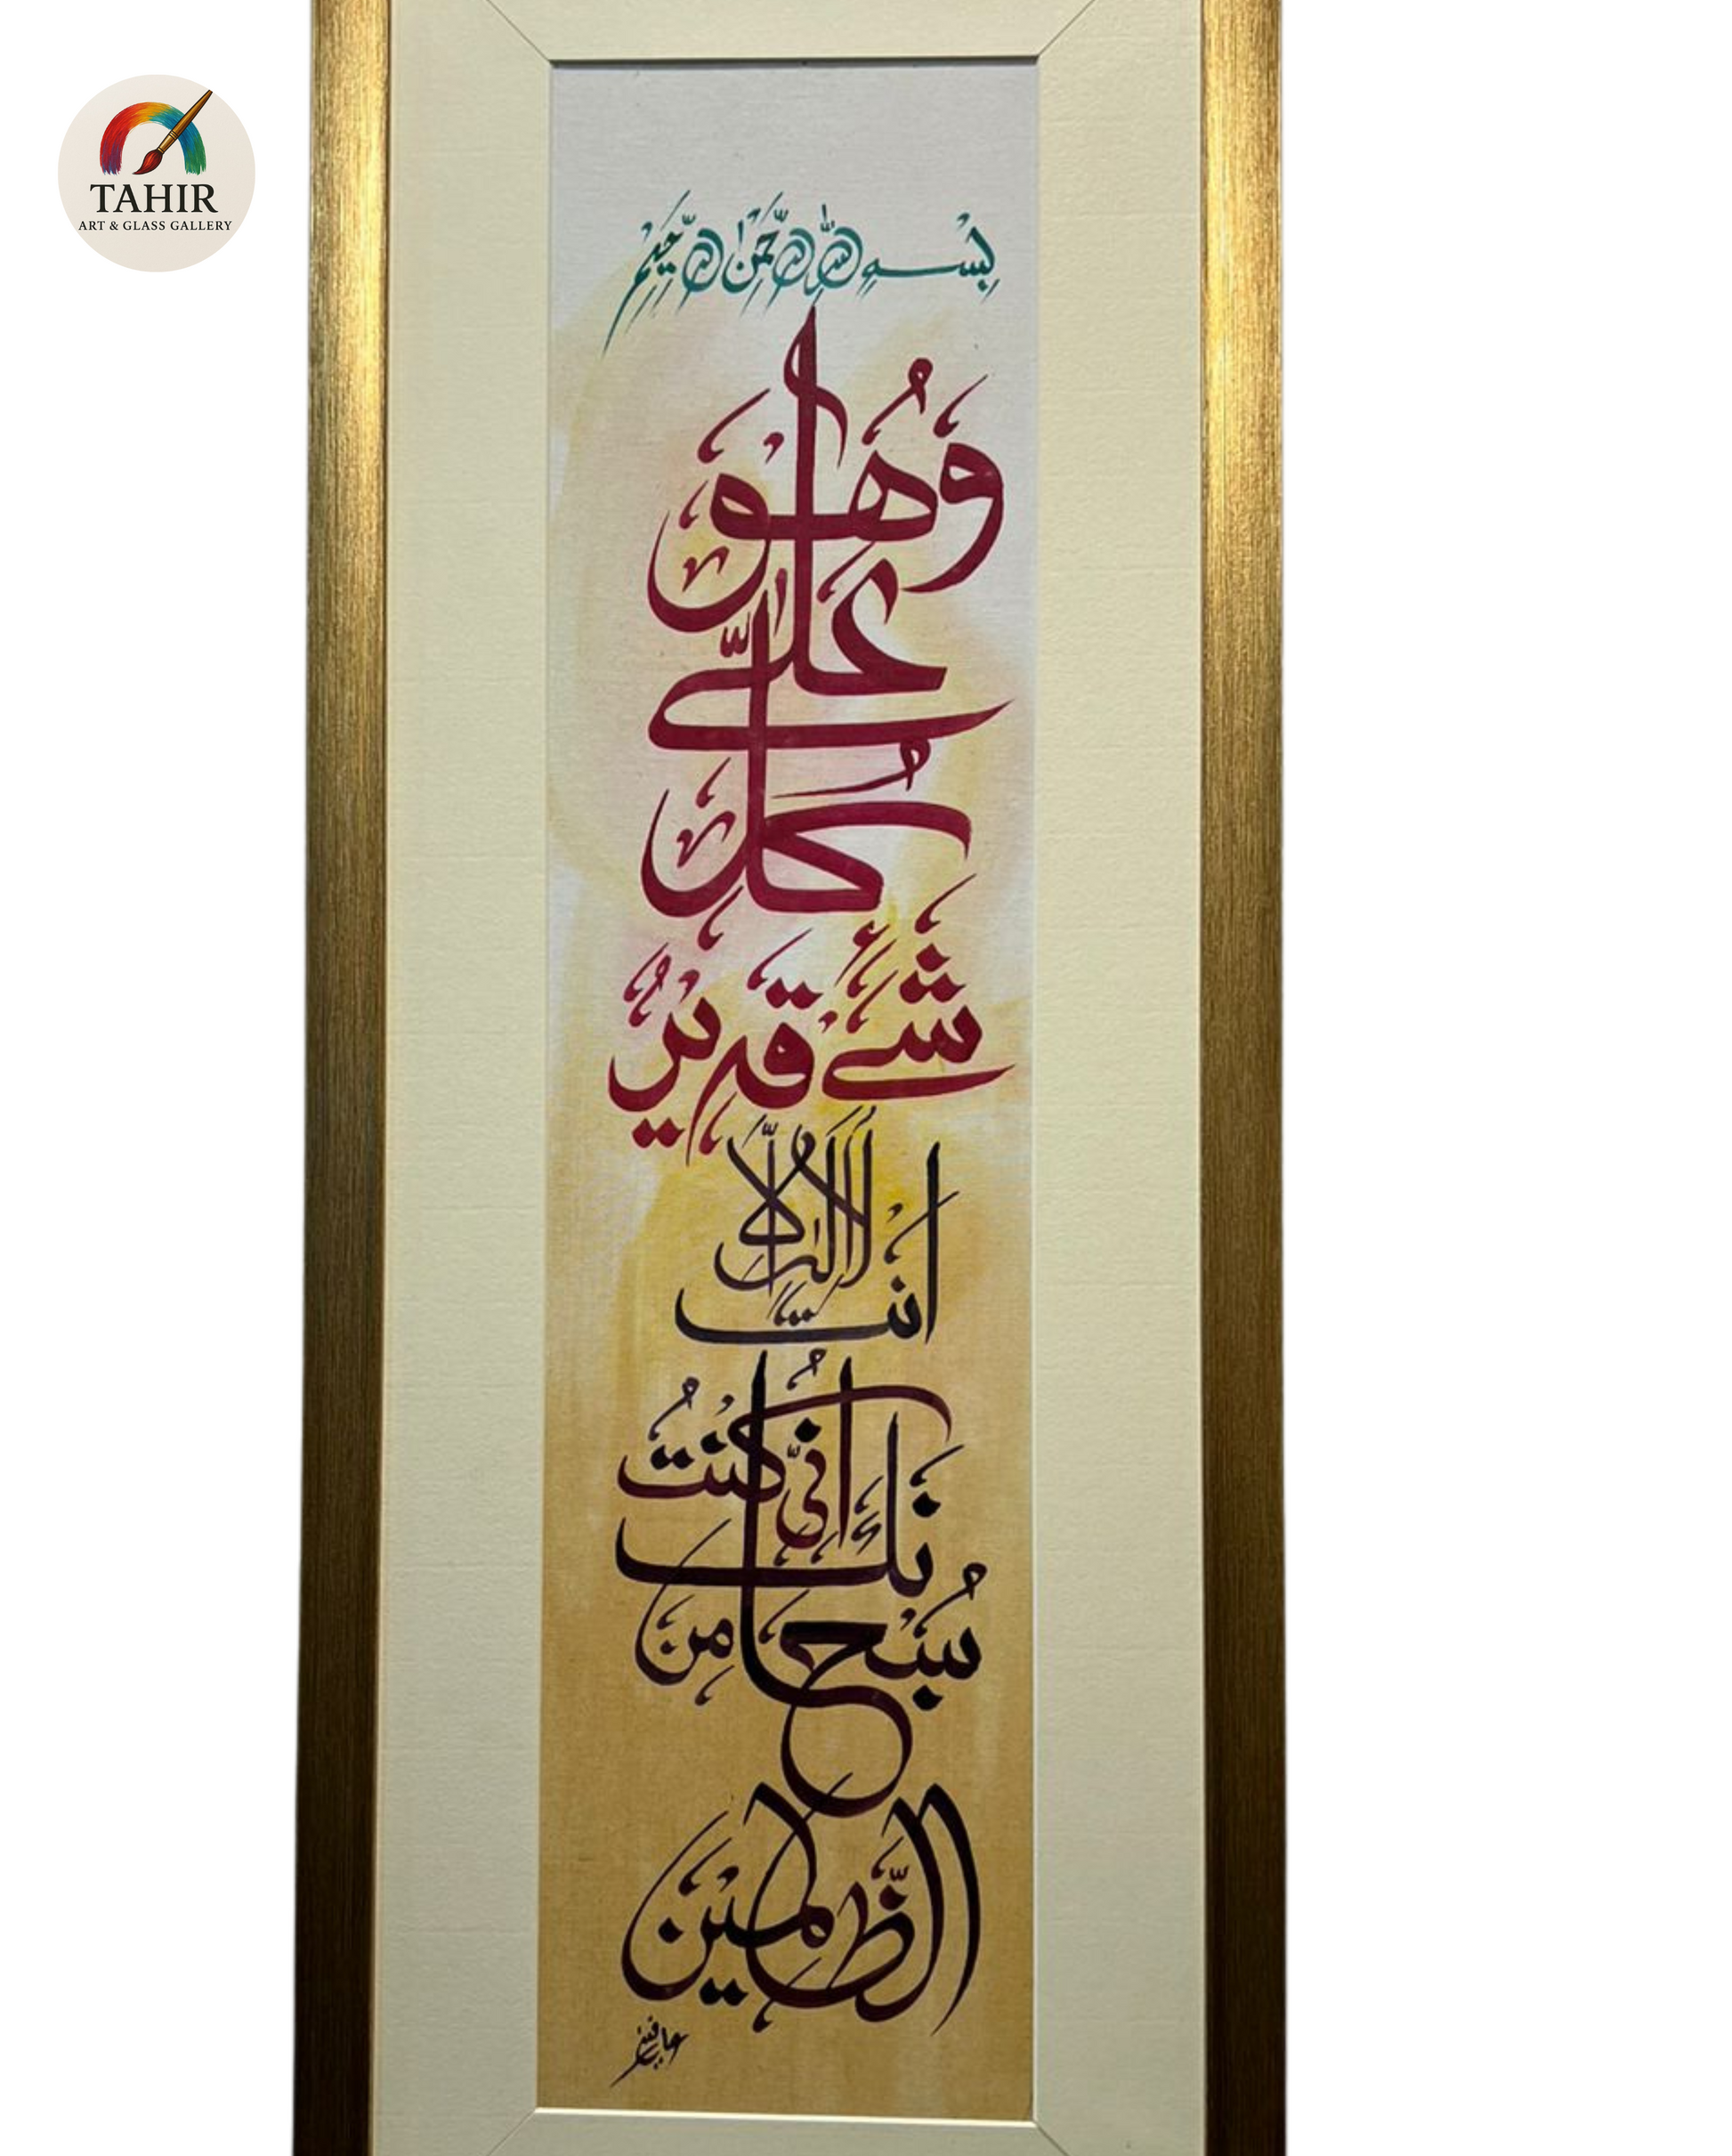 TAHIR
ART & GLASS GALLERY
بِسْمِ اللّٰهِ الرَّحْمٰنِ الرَّحِيْمِ
وَهُوَ
عَلٰى
كُلِّ
شَيْءٍ قَدِيْرٌ
لَا اِلٰهَ اِلَّا
اَنْتَ
سُبْحَانَكَ
اِنِّيْ كُنْتُ
مِنَ
الظَّالِمِيْنَ